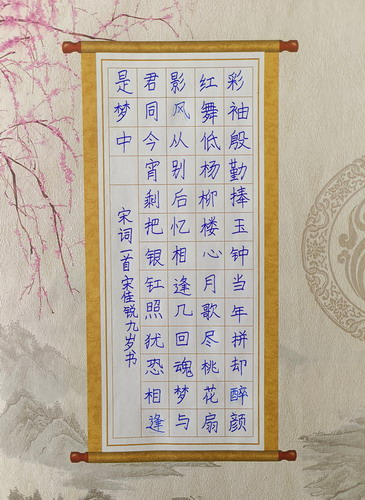 彩袖殷勤捧玉钟当年拼却醉颜
红舞低杨柳楼心月歌尽桃花扇
影风从别后忆相逢几回魂梦与
君同今宵剩把银釭照犹恐相逢
是梦中
宋词一首宋佳锐九岁书